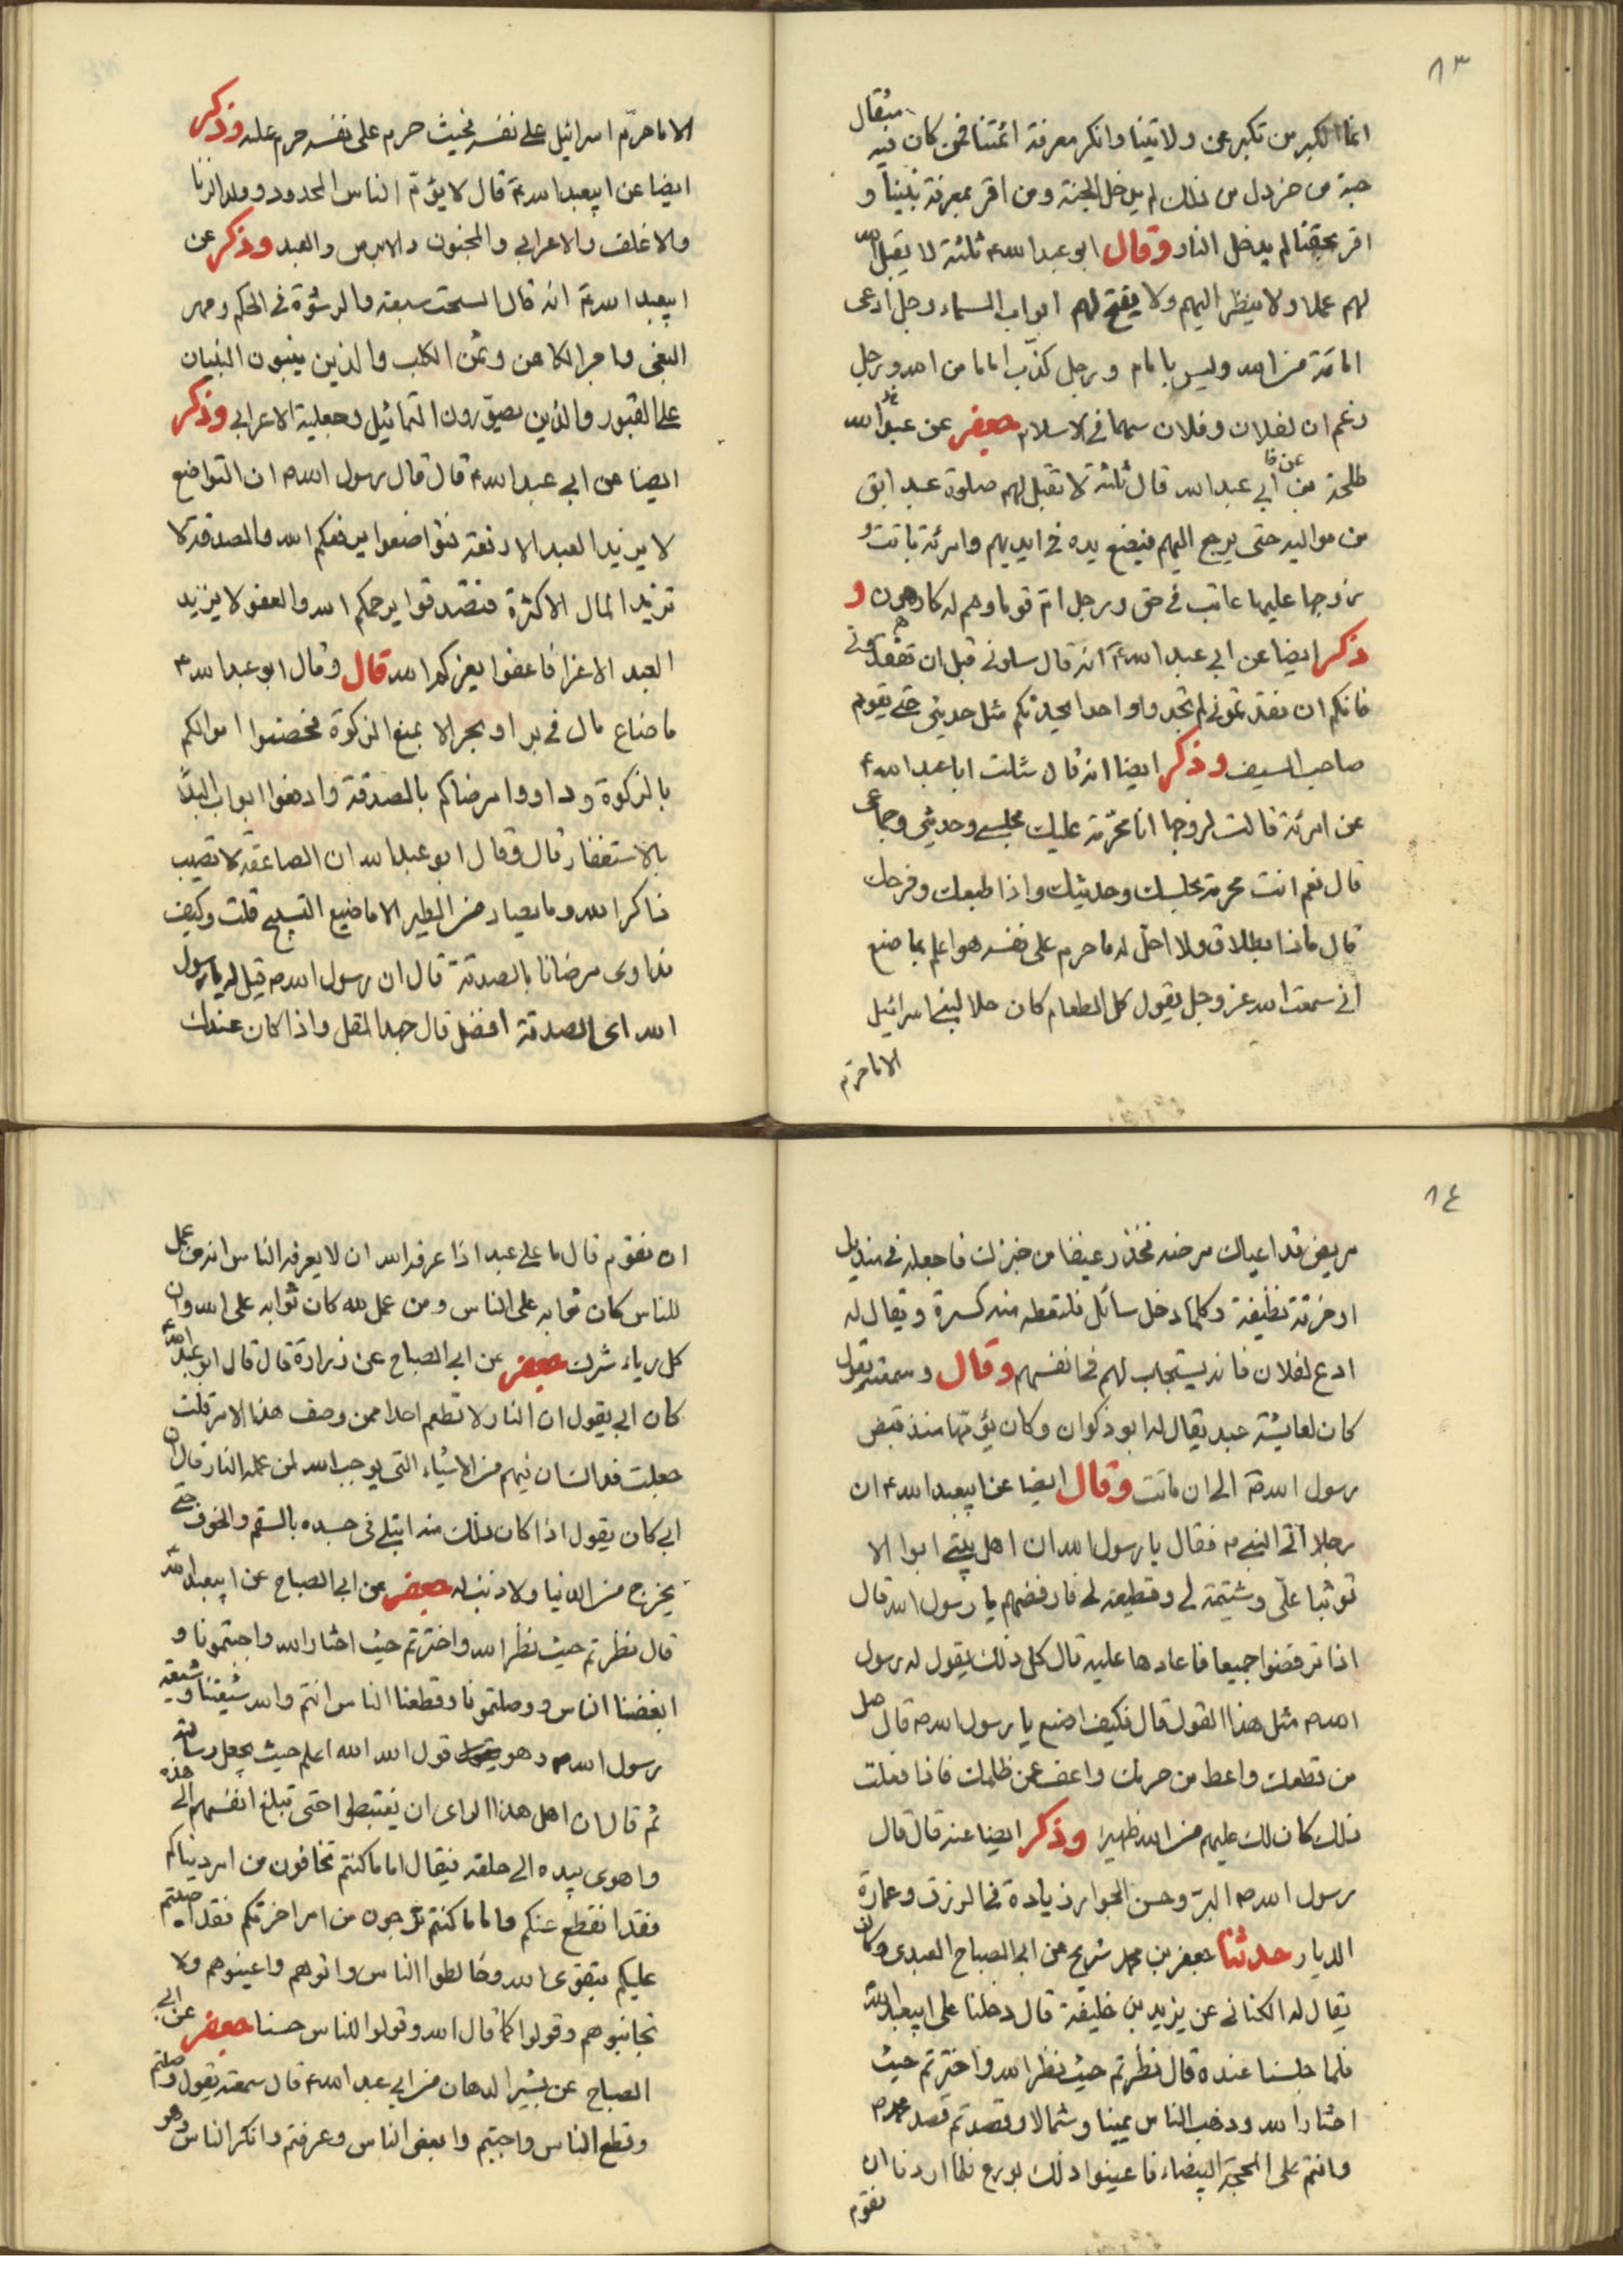 ٨٣
انما الكبر من تكبر عن ولايتنا وانكر معرفة ائمتنا فمن كان فيه مثقال
حبة من خردل من ذلك لم يدخل الجنة ومن اقر بمعرفة نبينا و
اقر بحقنا لم يدخل النار وقال ابو عبد الله ع ثلثة لا يقبل الله
لهم عملا ولا ينظر اليهم ولا يفتح لهم ابواب السماء رجل ادعى
امامة من الله وليس بامام ورجل كذب اماما من الله ورجل
زعم ان لفلان وفلان سهما في الاسلام جعفر عن عبد الله
طلحة عن ابي عبد الله قال ثلثة لا تقبل لهم صلوة عبد ابق
من مواليه حتى يرجع اليهم فيضع يده في ايديهم وامرئة باتت و
زوجها عليها عاتب في حق ورجل ام قوما وهم له كارهون و
ذكر ايضا عن ابي عبد الله ع انه قال سلوني قبل ان تفقدوني
فانكم ان تفقدتموني لم تجدوا واحدا يحدثكم مثل حديثي حتى يقوم
صاحب السيف وذكر ايضا انه قال سئلت ابا عبد الله ع
عن امرئة قالت لزوجها انا محرمة عليك مجلسي وحديثي وجماعي
قال نعم انت محرمة مجلسك وحديثك واذا طبعك وفرجك
قال ماذا بطلاق ولا احل له ما حرم على نفسه هو اعلم بما صنع
اني سمعت الله عز وجل يقول كل الطعام كان حلا لبني اسرائيل
الا ما حرم
الا ما حرم اسرائيل على نفسه فحيث حرم على نفسه حرم عليه وذكر
ايضا عن ابيعبد الله ع قال لا يؤم الناس المحدود وولد الزنا
والاغلف والاعرابي والمجنون والابرص والعبد وذكر عن
ابيعبد الله ع انه قال السحت سبعة الرشوة في الحكم ومهر
البغي واجر الكاهن وثمن الكلب والذين يبنون البنيان
على القبور والذين يصورون التماثيل وجعلية الاعرابي وذكر
ايضا عن ابي عبد الله ع قال قال رسول الله ص ان التواضع
لا يزيد العبد الا رفعة فتواضعوا يرفعكم الله والصدقة لا
تزيد المال الا كثرة فتصدقوا يرحمكم الله والعفو لا يزيد
العبد الا عزا فاعفوا يعزكم الله قال وقال ابو عبد الله ع
ما ضاع مال في بر او بحر الا بمنع الزكوة فحصنوا اموالكم
بالزكوة وداووا مرضاكم بالصدقة وادفعوا ابواب البلاء
بالاستغفار قال وقال ابو عبد الله ان الصاعقة لا تصيب
ذاكر الله وما يصاد من الطير الا ما ضيع التسبيح قلت وكيف
نداوي مرضانا بالصدقة قال ان رسول الله ص قيل له يا رسول
الله اى الصدقة افضل قال جهد المقل واذا كان عندك
٨٤
مريض قد اعياك مرضه فخذ رغيفا من خبزك فاجعله في منديل
او خرقة نظيفة وكلما دخل سائل فلتقطعه منه كسرة ويقال له
ادع لفلان فانه يستجاب لهم في انفسهم وقال وسمعته يقول
كان لعايشة عبد يقال له ابو ذكوان وكان يؤمها منذ قبض
رسول الله ص الى ان ماتت وقال ايضا عن ابيعبد الله ع ان
رجلا اتى النبي ص فقال يا رسول الله ان اهل بيتي ابوا الا
توثبا علي وشتيمة لي وقطيعة لي فارفضهم يا رسول الله قال
اذا ترفضوا جميعا فاعادها عليه قال كل ذلك يقول له رسول
الله ص مثل هذا القول قال فكيف اصنع يا رسول الله ص قال صل
من قطعك واعط من حرمك واعف عن ظلمك فاذا فعلت
ذلك كان لك عليهم من الله ظهيرا وذكر ايضا عنه قال قال
رسول الله ص البر وحسن الجوار زيادة في الرزق وعمارة
الديار حدثنا جعفر بن محمد شريح عن ابي الصباح العبدى وكان
يقال له الكناني عن يزيد بن خليفة قال دخلنا على ابيعبد الله
فلما جلسنا عنده قال نظرتم حيث نظر الله واخترتم حيث
اختار الله وذهب الناس يمينا وشمالا وقصدتم قصد محمد ص
وانتم على المحجة البيضاء فاعينوا ذلك بورع فلما اردنا ان
نقوم
ان نقوم قال ما على عبد اذا عرفه الله ان لا يعرفه الناس انه من عمل
للناس كان ثوابه على الناس ومن عمل لله كان ثوابه على الله وان
كل رياء شرك جعفر عن ابي الصباح عن زرارة قال قال ابو عبد الله ع
كان ابي يقول ان النار لا تطعم احدا ممن وصف هذا الامر قلت
جعلت فداك ان فيهم من الاشياء التي يوجب الله لمن عمله النار قال ان
ابي كان يقول اذا كان ذلك منه ابتلي في جسده بالسقم والخوف حتى
يخرج من الدنيا ولا ذنب له جعفر عن ابي الصباح عن ابيعبد الله
قال نظرتم حيث نظر الله واخترتم حيث اختار الله واحببتمونا و
ابغضنا الناس ووصلتمونا وقطعنا الناس انتم والله شيعتنا وشيعة
رسول الله ص وهو قول الله الله اعلم حيث يجعل رسالته
ثم قال ان اهل هذا الراى ان يغتبطوا حتى تبلغ انفسهم الى هذه
واهوى بيده الى حلقه فيقال اما ما كنتم تخافون من امر دنياكم
فقد انقطع عنكم واما ما كنتم ترجون من امر اخرتكم فقد اصبتم
عليكم بتقوى الله وخالطوا الناس واتوهم واعينوهم ولا
تجانبوهم وقولوا كما قال الله وقولوا للناس حسنا جعفر عن ابي
الصباح عن بشير الدهان عن ابي عبد الله ع قال سمعته يقول وصلتم
وقطع الناس واحببتم وابغض الناس وعرفتم وانكر الناس وهو